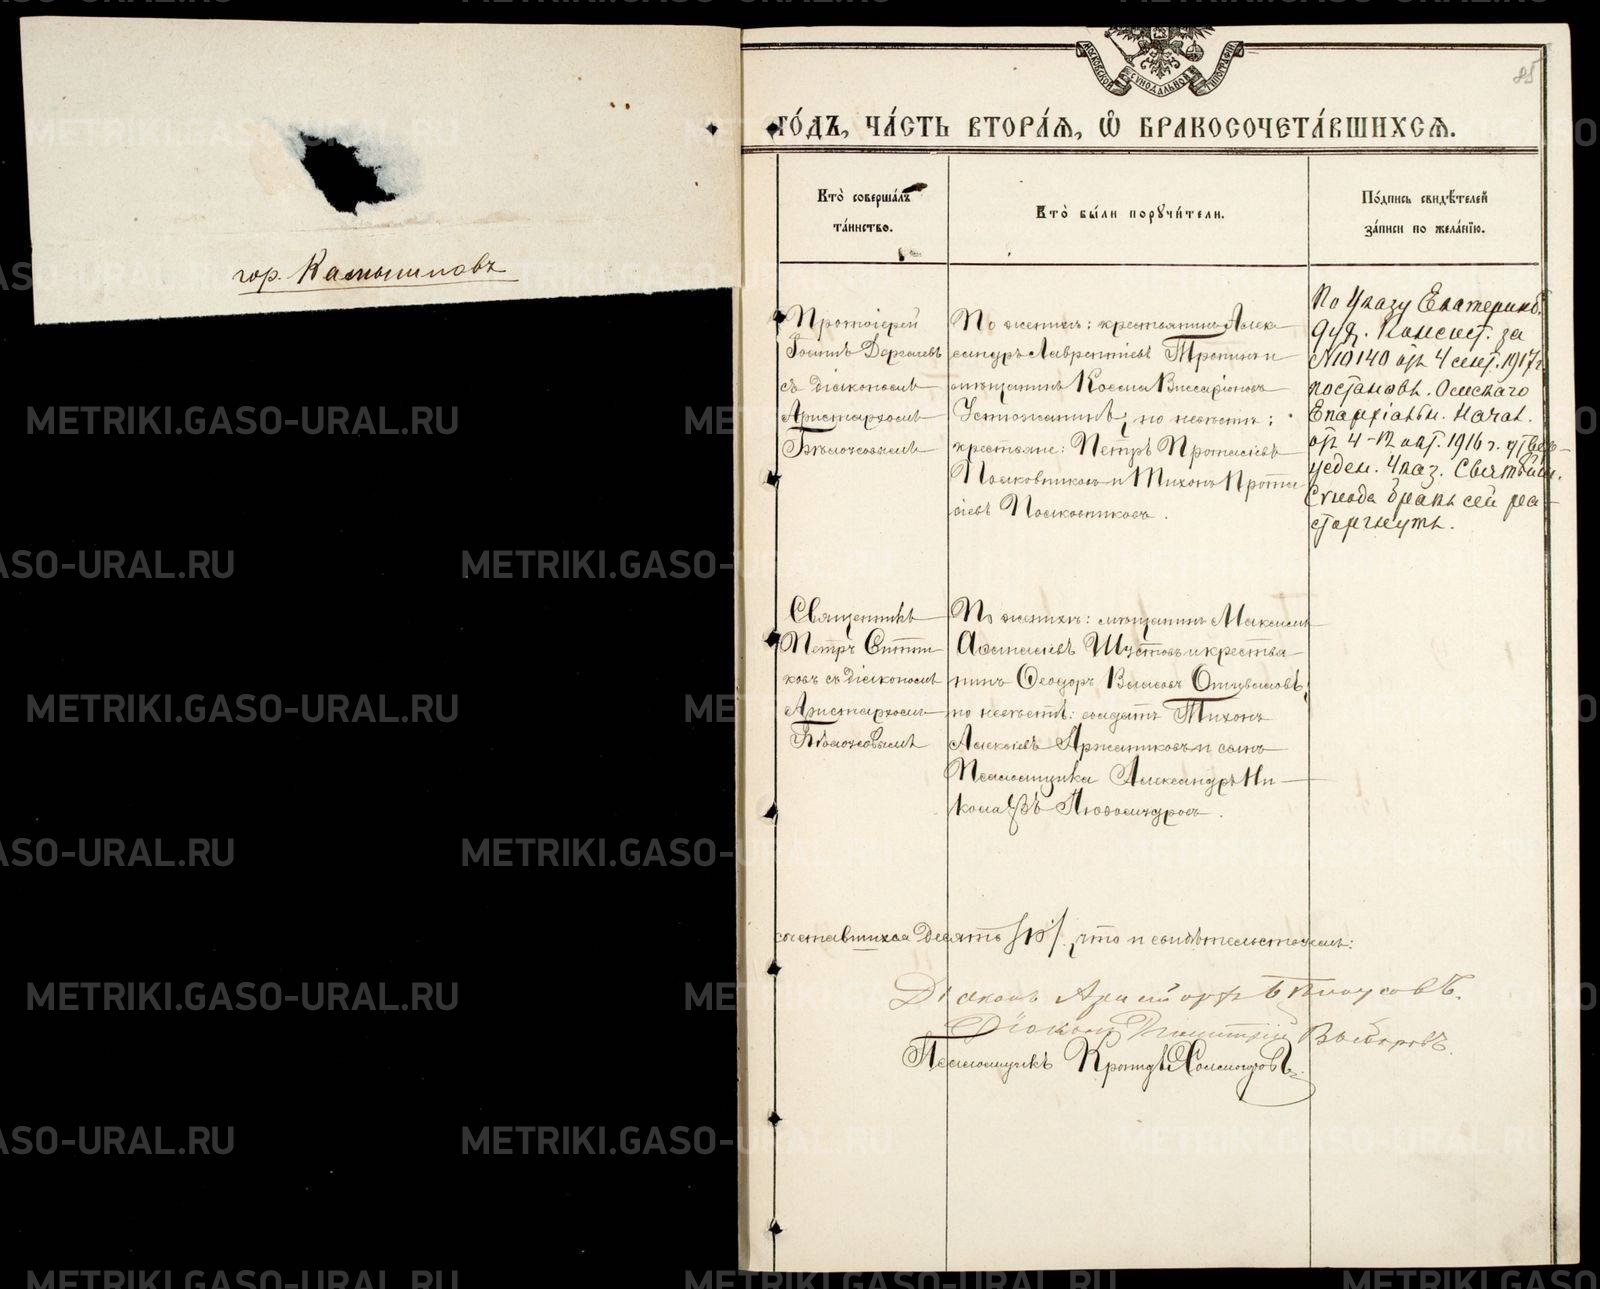 85
МОСКОВСКОЙ СѴНОДАЛЬНОЙ ТИПОГРАФІИ
ГО́ДЪ, ЧА́СТЬ ВТОРА́Я, Ѡ҆ БРАКОСОЧЕТА́ВШИХСЯ.
Кто̀ соверша́лъ
та́инство.
Кто̀ бы́ли пору́чи́тели.
По́дпись свидѣ́телей
за́писи по жела́нїю.
гор. Камышловъ
Протоіерей
Іоаннъ
съ діакономъ
Аристархомъ
Бѣлоусовымъ
По женихѣ: крестьянинъ Алек-
сандръ Лаврентіевъ Тропинъ и
мѣщанинъ Косма Виссаріоновъ
Устюжанинъ; по невѣстѣ:
крестьяне: Петръ Протасіевъ
Полковниковъ и Тихонъ Прота-
сіевъ Полковниковъ.
По Указу Екатеринб.
Дух. Консист. за
№10140 отъ 4 сент. 1917 г.
постановъ. Омскаго
Епархіальн. Начал.
отъ 4-12 окт. 1916 г. утвер-
жден. Указ. Святѣйш.
Сѵнода бракъ сей рас-
торгнутъ.
Священникъ
Петръ Ситни-
ковъ съ діакономъ
Аристархомъ
Бѣлоусовымъ
По женихѣ: мѣщанинъ Максимъ
Аѳанасіевъ Шустовъ и крестья-
нинъ Ѳеодоръ Власовъ
по невѣстѣ: солдатъ Тихонъ
Алексіевъ Аржанниковъ и сынъ
Псаломщика Александръ Ни-
колаевъ Любомудровъ.
сочетавшихся Десять /10/, что и свидѣтельствуемъ:
Діаконъ Аристархъ Бѣлоусовъ.
Діаконъ Димитрій
Псаломщикъ Кронидъ Холмогоровъ.
METRIKI.GASO-URAL.RU